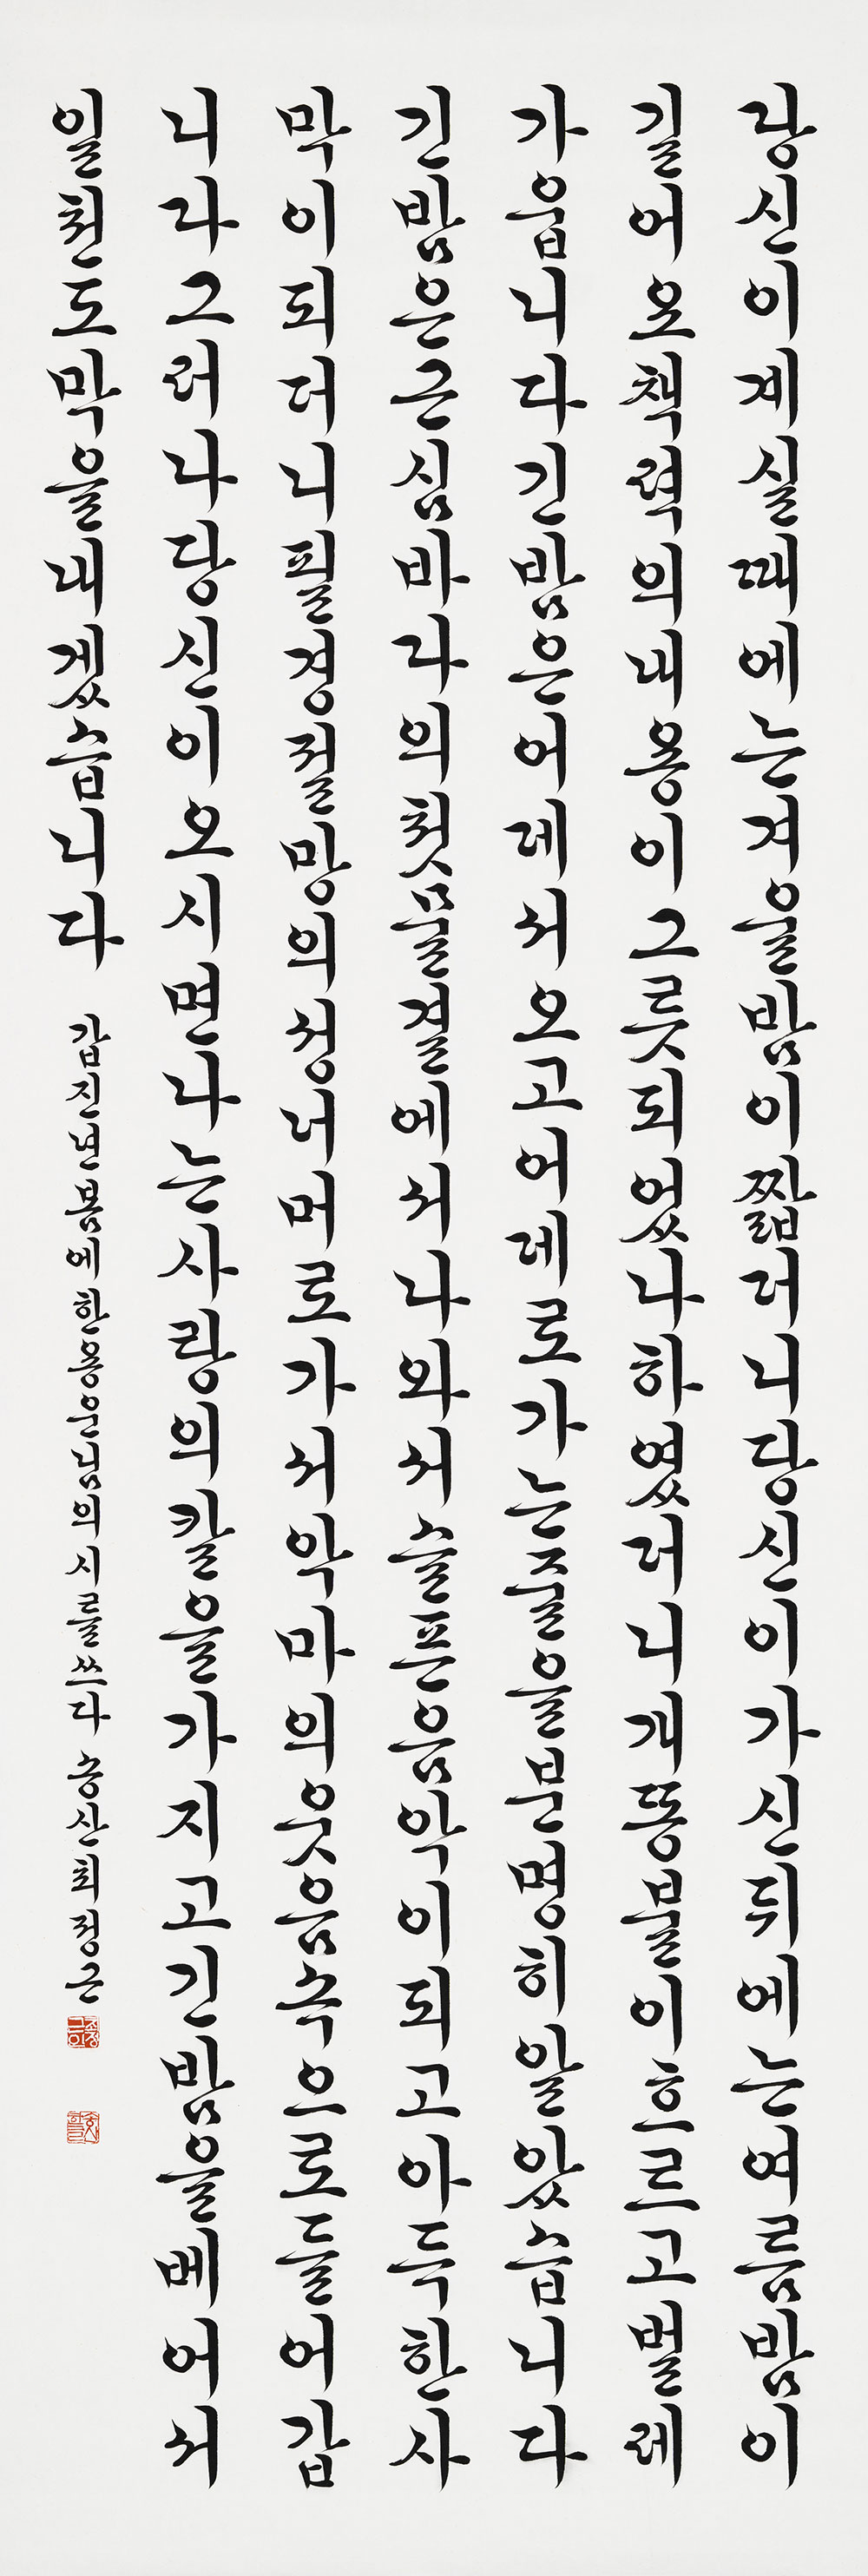 당신이계실때에는겨울밤이짧더니당신이가신뒤에는여름밤이
길어요책력의내용이그릇되었나하였더니개똥불이흐르고벌레
가웁니다긴밤은어데서오고어데로가는줄을분명히알았습니다
긴밤은근심바다의첫물결에서나와서슬픈음악이되고아득한사
막이되더니필경절망의성너머로가서악마의웃음속으로들어갑
니다그러나당신이오시면나는사랑의칼을가지고긴밤을베어서
일천도막을내겠습니다 갑진년봄에한용운님의시를쓰다 송산최정근